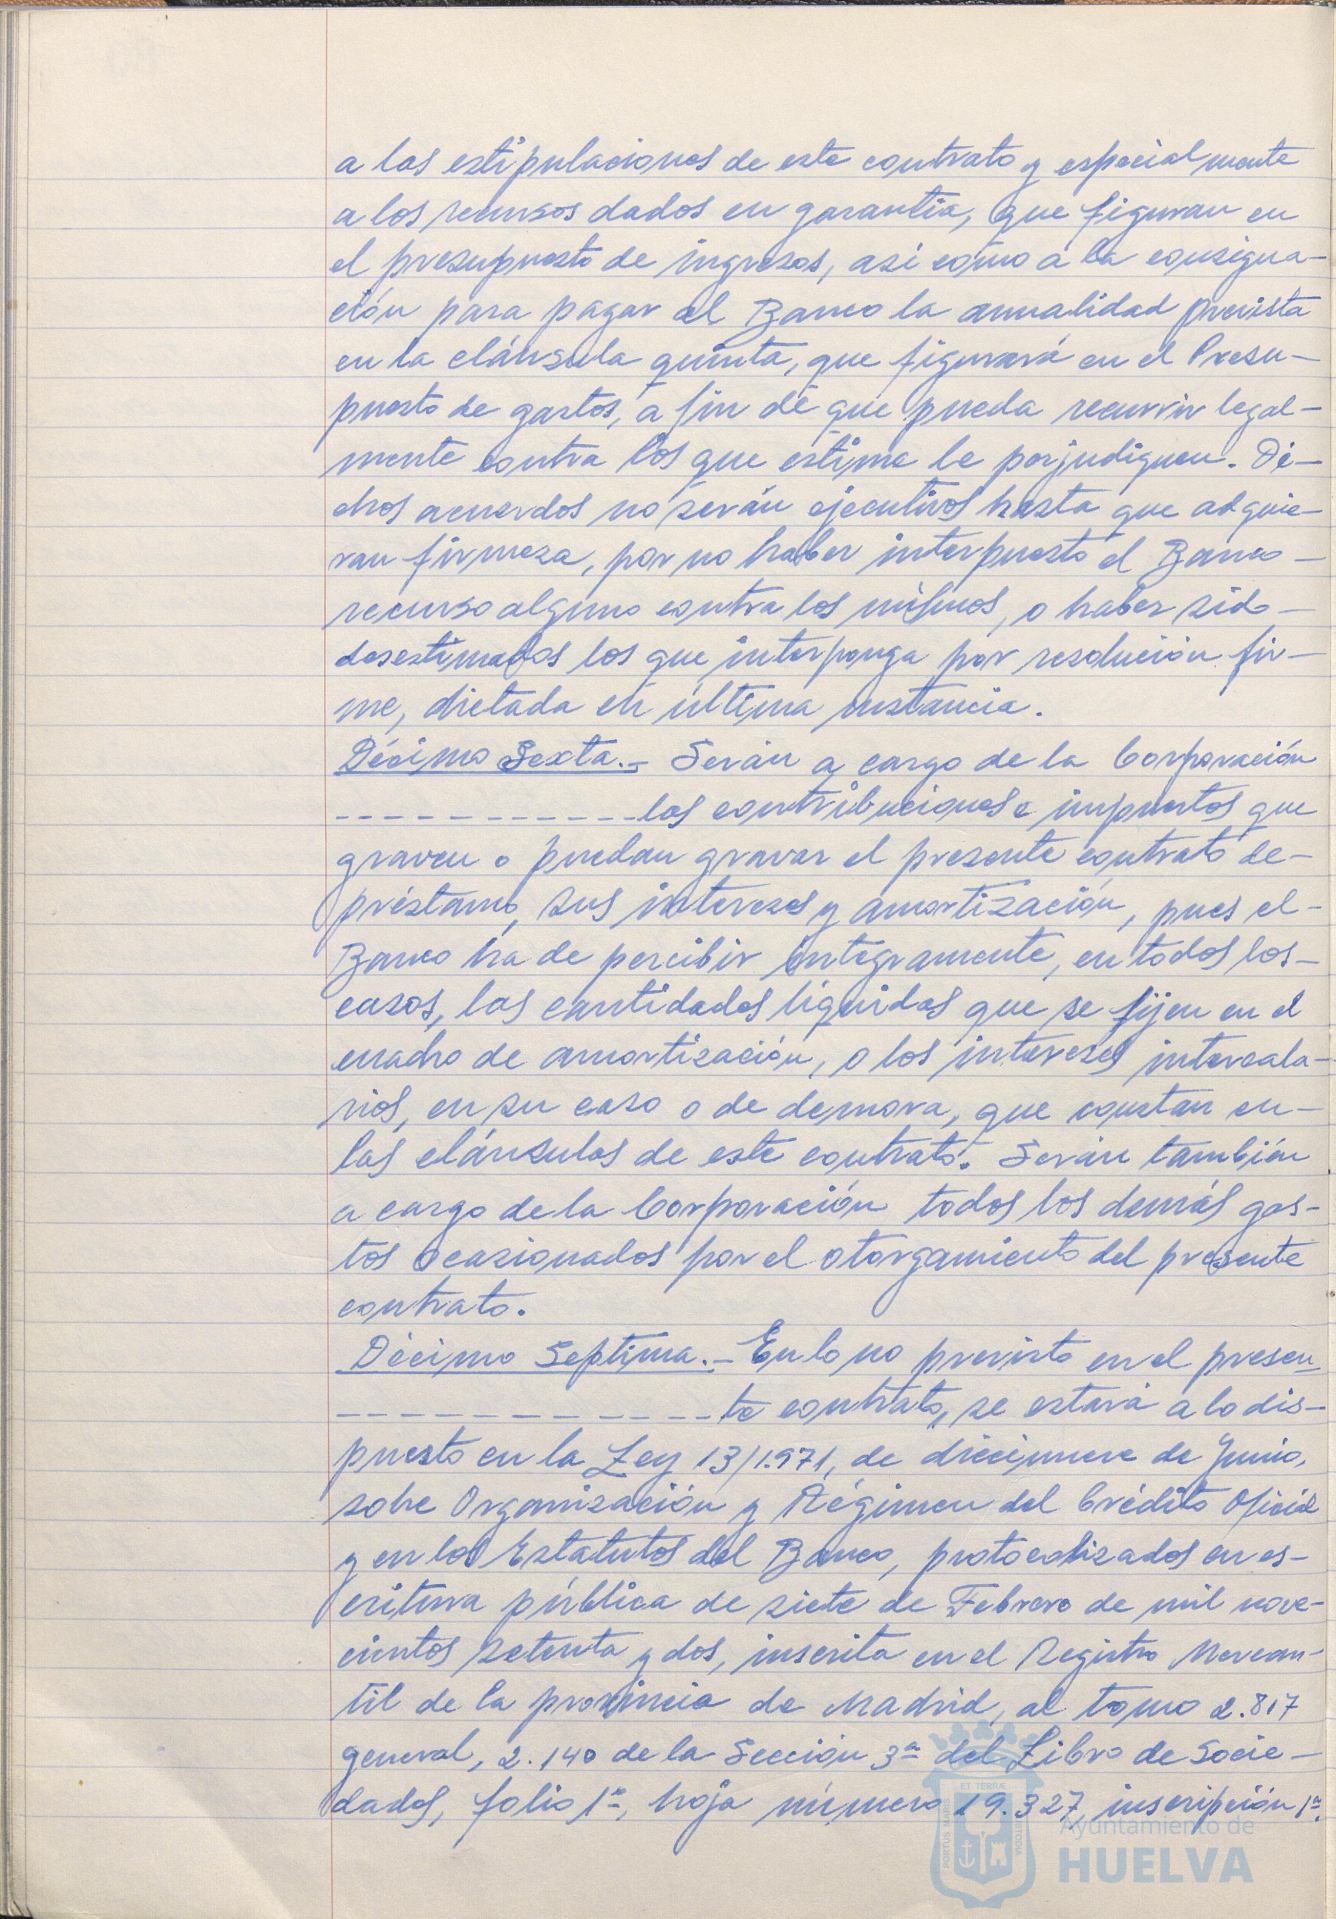 a las estipulaciones de este contrato y especialmente
a los recursos dados en garantía, que figuran en
el presupuesto de ingresos, así como a la consigna-
ción para pagar al Banco la anualidad prevista
en la cláusula quinta, que figurará en el Presu-
puesto de gastos, a fin de que pueda recurrir legal-
mente contra los que estime le perjudiquen. Di-
chos acuerdos no serán ejecutivos hasta que adquie-
ran firmeza, por no haber interpuesto el Banco -
recurso alguno contra los mismos, o haber sido -
desestimados los que interponga por resolución fir-
me, dictada en última instancia.
Décimo Sexta.- Serán a cargo de la Corporación
------------las contribuciones e impuestos que
graven o puedan gravar el presente contrato de-
préstamo, sus intereses y amortización, pues el-
Banco ha de percibir íntegramente, en todos los-
casos, las cantidades líquidas que se fijen en el
cuadro de amortización, o los intereses intercala-
rios, en su caso o de demora, que constan en-
las cláusulas de este contrato. Serán también
a cargo de la Corporación todos los demás gas-
tos ocasionados por el otorgamiento del presente
contrato.
Décimo Septima.- En lo no previsto en el presen-
--------------te contrato, se estará a lo dis-
puesto en la Ley 13/1.971, de diecinueve de Junio,
sobre Organización y Régimen del Crédito Oficial
y en los Estatutos del Banco, protocolizados en es-
critura pública de siete de Febrero de mil nove-
cientos setenta y dos, inscrita en el Registro Mercan-
til de la provincia de Madrid, al tomo 2.817
general, 2.140 de la Sección 3ª del Libro de Socie-
dades, folio 1º, hoja número 19.327, inscripción 1ª.
PORTUS MARIS ET TERRÆ CUSTODIA
Ayuntamiento de
HUELVA